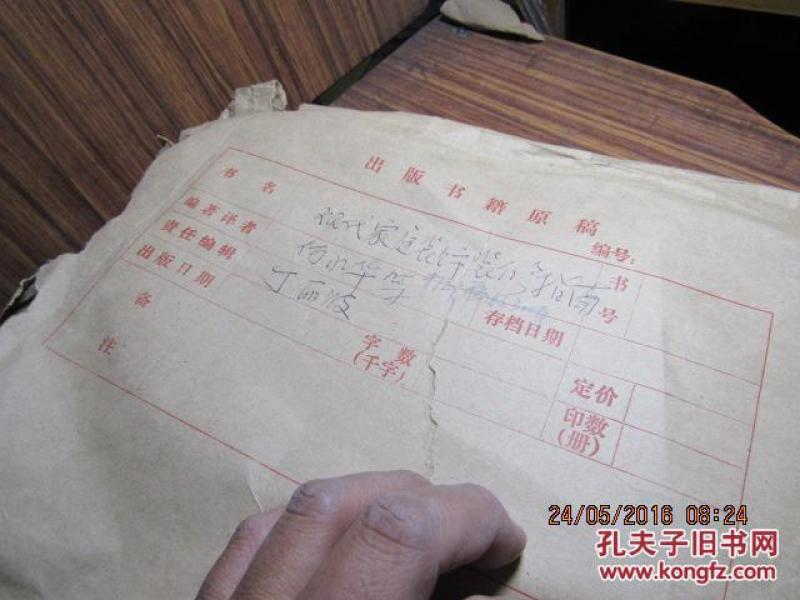 出版书籍原稿
编号：
书名 现代家庭装饰装修指南
书号
编著译者
责任编辑 丁丽波
存档日期
出版日期
字数（千字）
定价
印数（册）
备注
24/05/2016 08:24
孔夫子旧书网
www.kongfz.com